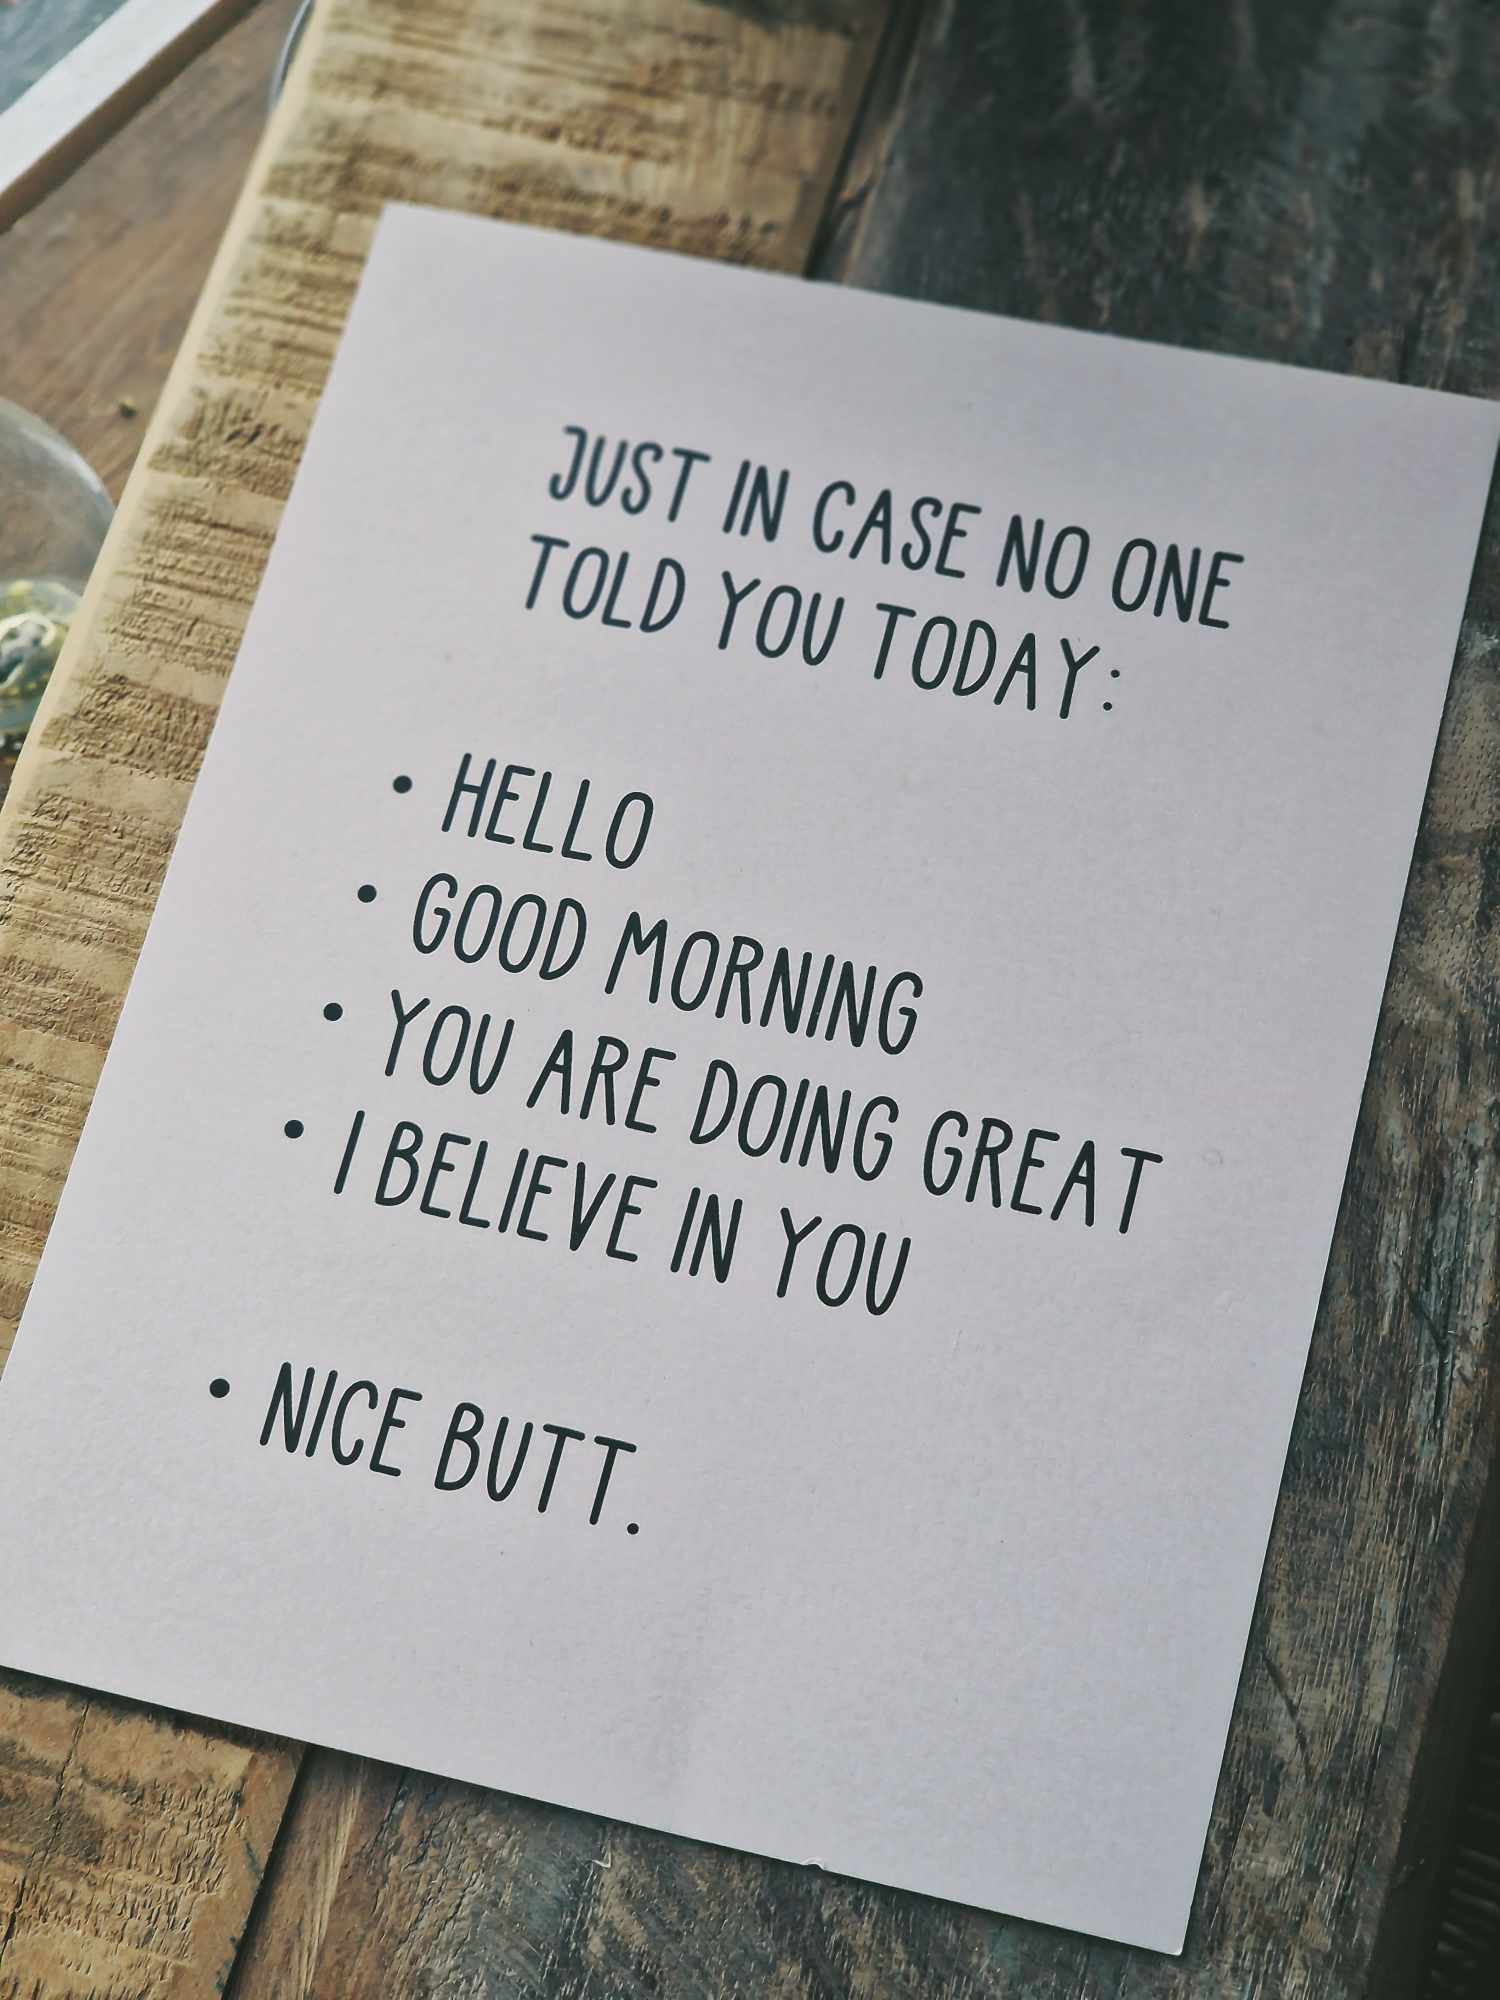 JUST IN CASE NO ONE
TOLD YOU TODAY:
• HELLO
• GOOD MORNING
• YOU ARE DOING GREAT
• I BELIEVE IN YOU
• NICE BUTT.